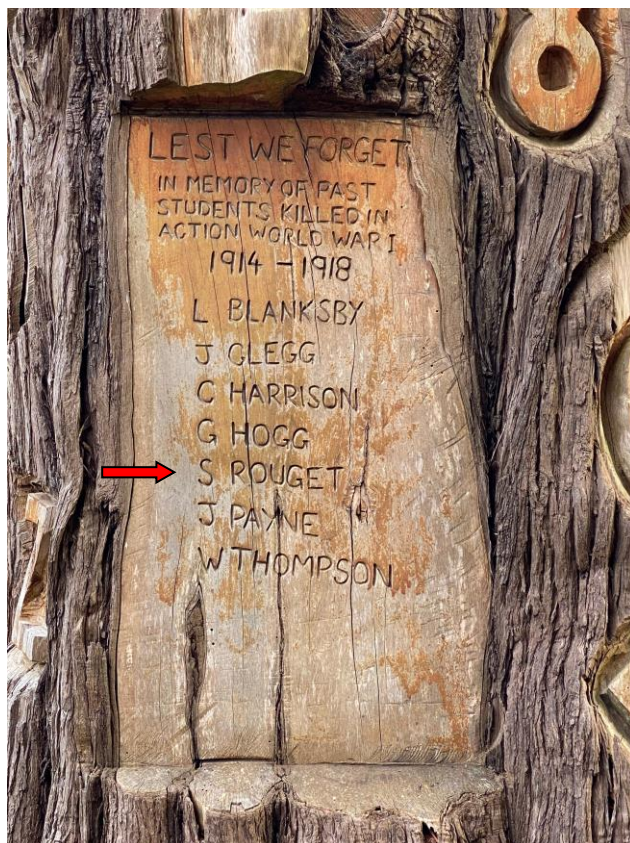 LEST WE FORGET
IN MEMORY OF PAST
STUDENTS KILLED IN
ACTION WORLD WAR I
1914 - 1918
L BLANKSBY
J CLEGG
C HARRISON
G HOGG
S ROUGET
J PAYNE
W THOMPSON